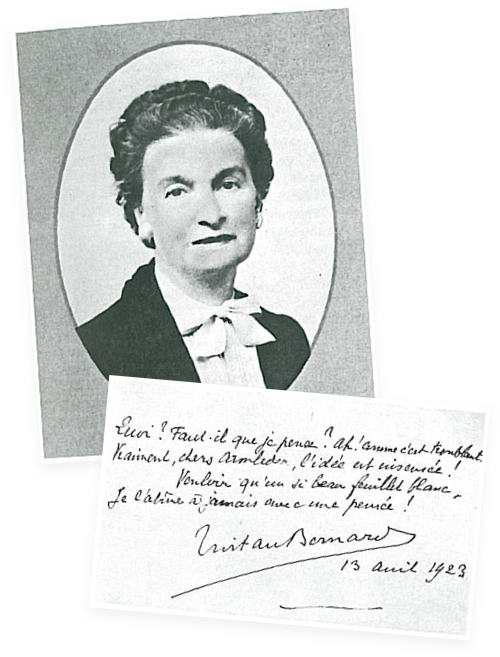 Quoi? Faut-il que je pense? Ah! comme c'est troublant.
Vraiment, chers Armleder, l'idée est insensée!
Vouloir qu'un si beau feuillet blanc,
Je l'abîme à jamais avec une pensée!
Tristan Bernard
13 avril 1923